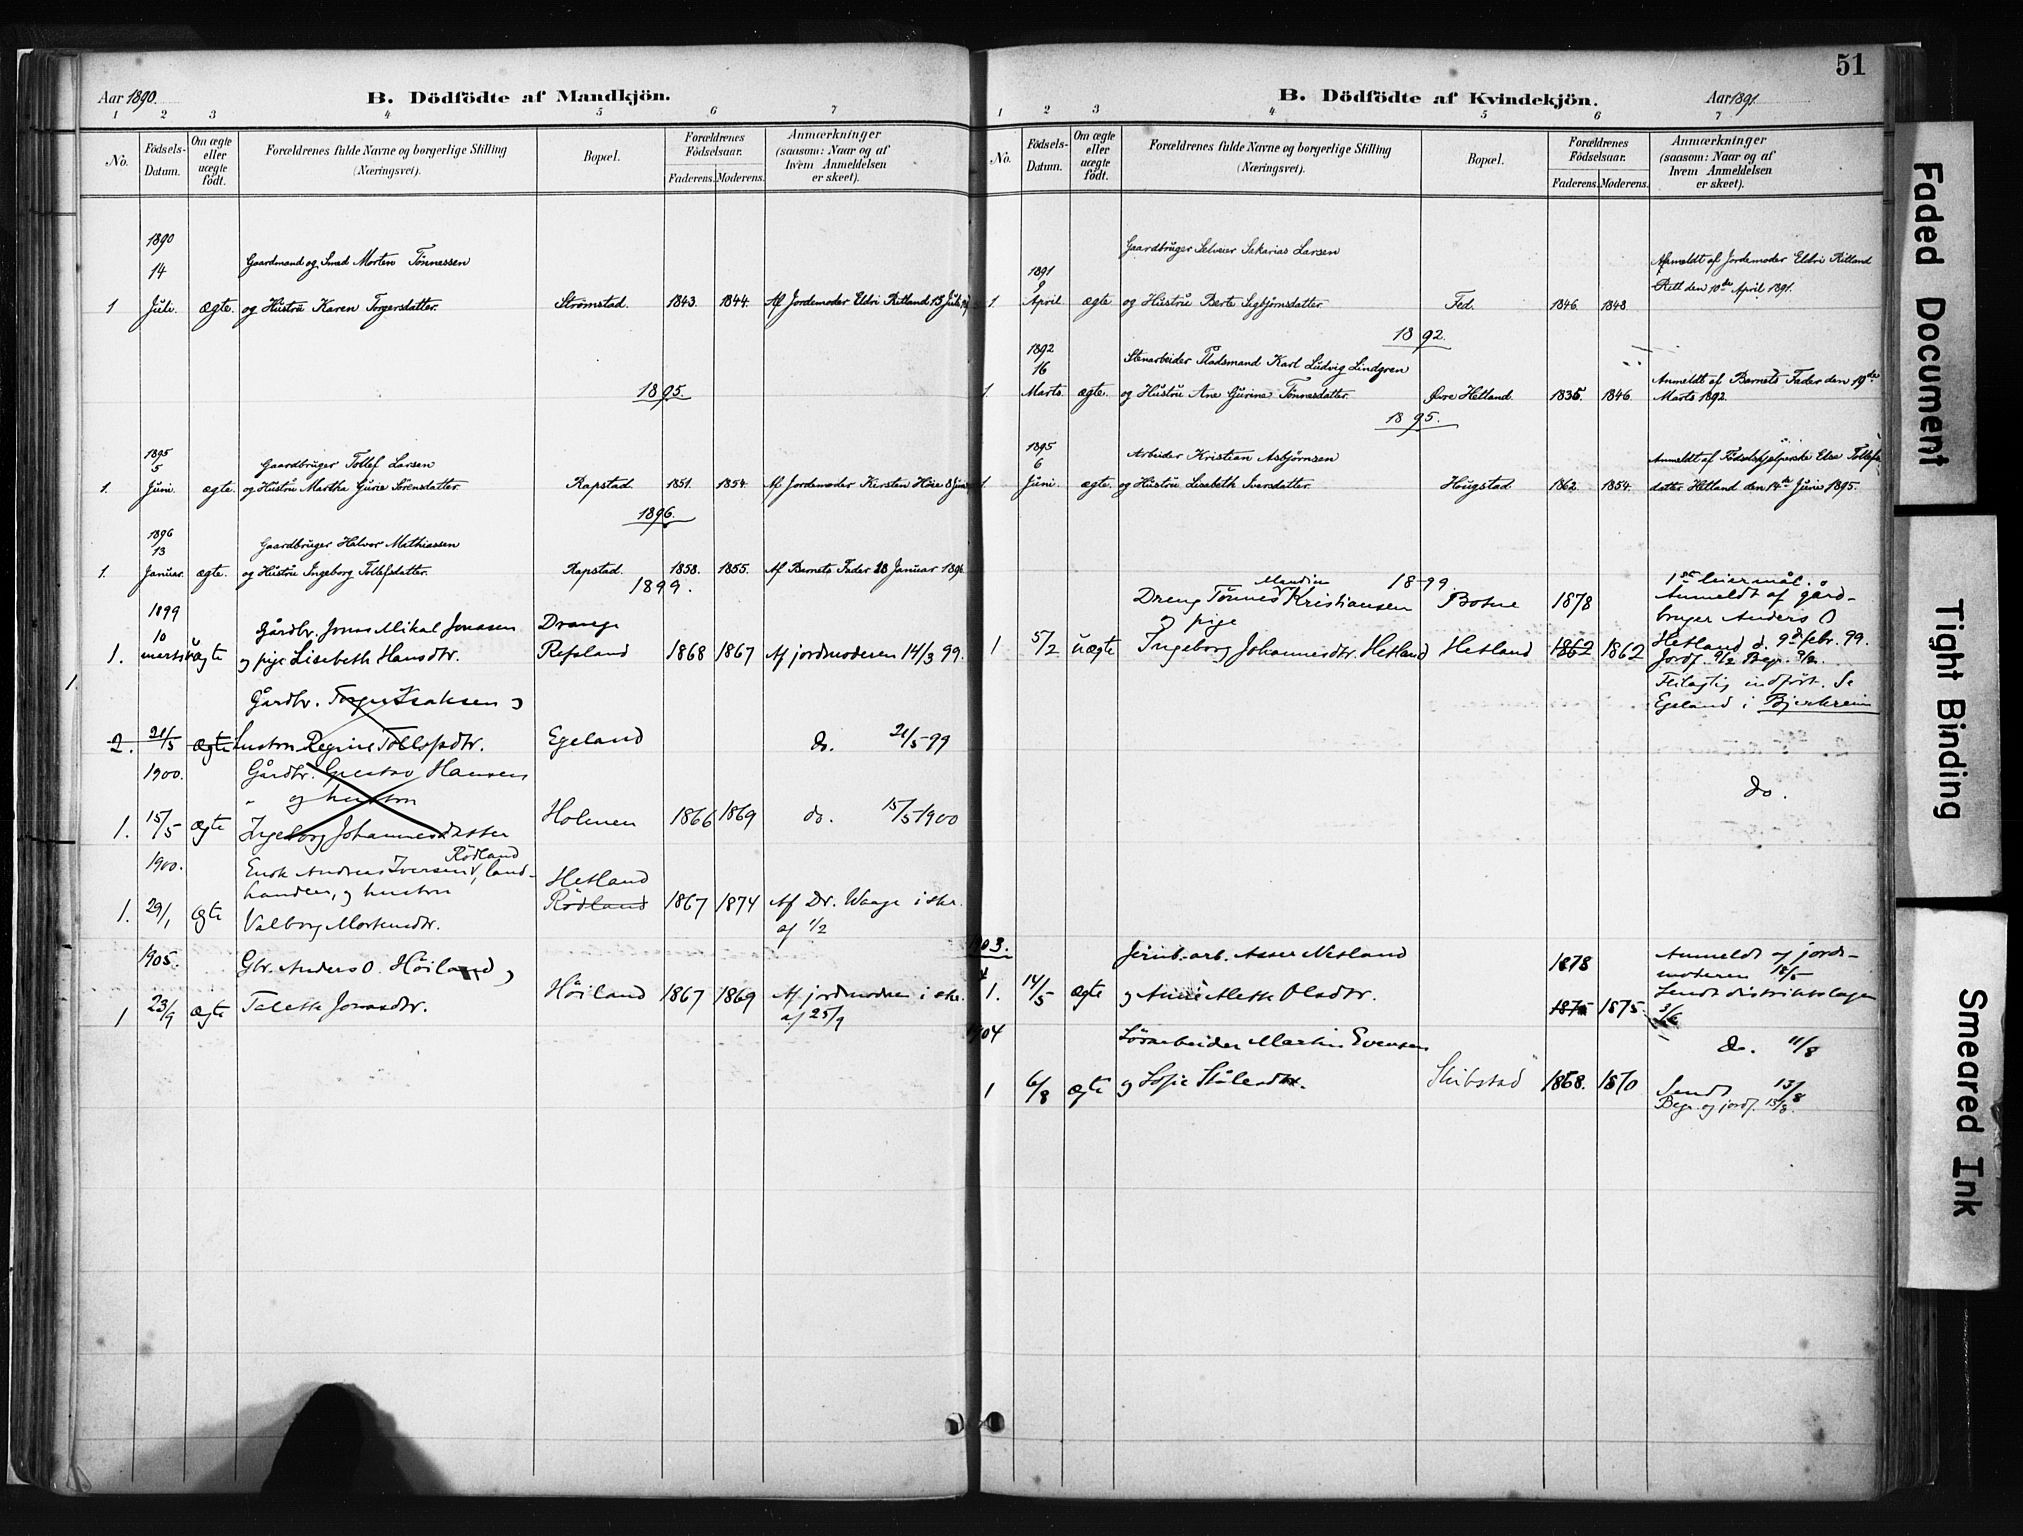 Aar 1890.
B. Dödfödte af Mandkjön.
1 2 3 4 5 6 7
No.
Födsels-Datum.
Om ægte eller uægte födt.
Forældrenes fulde Navne og borgerlige Stilling (Næringsvei).
Bopæl.
Forældrenes Födselsaar.
Faderens. Moderens.
Anmærkninger (saasom: Naar og af hvem Anmeldelsen er skeet).
1890
14
Gaardmand og Smed Morten Tönnessen
1 Juli. ægte. og Hustru Karen Torgersdatter. Strömstad. 1843. 1844. Af Jordemoder Eldri Ritland 13 Juli
1895.
1895
5
Gaardbruger Tollef Larsen
1. Juni ægte. og Hustru Martha Gurie Sörensdatter Rapstad. 1851. 1854. Af Jordemoder Kirsten Höie 8 Juni
1896.
1896
13
Gaardbruger Halvor Mathiassen
1. Januar. ægte. og Hustru Ingeborg Tollefsdatter. Rapstad. 1858. 1855. Af Barnets Fader 28 Januar
1899.
1899
10
Gårdbr. Jonas Mikal Jonasen Drange
1. marts uægte og pige Lisebeth Hansdtr. Refsland 1868 1867 Af jordmoderen 14/3 99.
Gårdbr. Isaksen og
2. 21/5 ægte hustru Regine Tollefsdtr. Egeland do. 21/5 99
1900. Gårdbr. Gustav Hansen
" og hustru
1. 15/5 ægte Ingeborg Johannesdatter Holmen 1866 1869 do. 15/5 1900
1900. Rødland
Enok Andreas Iversen, land-
handler, og hustru Hetland
1. 29/1 ægte Valborg Mortensdtr. Rødland 1867 1874 Af Dr. Waage i skr.
af 1/2
1905. Gbr. Anders O. Höiland,
1 23/9 ægte Talette Jonasdtr. Höiland 1867 1869 Af jordmoderen i skr.
af 25/9
51
B. Dödfödte af Kvindekjön.
Aar 1891.
1 2 3 4 5 6 7
No.
Födsels-Datum.
Om ægte eller uægte födt.
Forældrenes fulde Navne og borgerlige Stilling (Næringsvei).
Bopæl.
Forældrenes Födselsaar.
Faderens. Moderens.
Anmærkninger (saasom: Naar og af hvem Anmeldelsen er skeet).
Gaardbruger Selveier Sakarias Larsen
1891
9
Anmeldt af Jordemoder Eldri Ritland
den 10de April 1891.
1. April ægte og Hustru Berte Sigbjörnsdatter Fed. 1846. 1848
1892.
1892
16
Stenarbeider Pladsmand Karl Ludvig Lindgren
Anmeldt af Barnets Fader den 19de
1. Marts. ægte. og Hustru Ane Gurine Tönnesdatter Övre Hetland. 1835. 1846. Marts 1892.
1895.
1895
6
Arbeider Kristian Asbjörnsen
Anmeldt af Födselshjelperske Elsa Tollefs
1. Juni ægte. og Hustru Lisebeth Iversdatter. Hougstad. 1862. 1854. datter Hetland den 14de Junie 1895.
1899.
1ste leiermål.
Dreng Tönnes Kristiansen Botne 1878 Anmeldt af gård-
og pige bruger Anders O
1 5/2 uægte Ingeborg Johannesdtr. Hetland Hetland 1862 1862 Hetland d. 9d febr. 99.
Feilagtig indført. Se
Egeland i Bjerkreim
do.
1903.
Jernb.arb. Aeser Netland 1878 Anmeldt af jord-
moderen 18/5
1. 14/5 ægte og Anne Alette Olsdtr. 1875 1875 Sendt distriktslægen
3/6
1904
Lösarbeider Martin Evensen do. 11/8
1 6/8 ægte og Sofie Stålesdtr. Skibstad 1868. 1870 Sendt 13/8
Begr. og jordf. 13/8.
Faded Document
Tight Binding
Smeared Ink